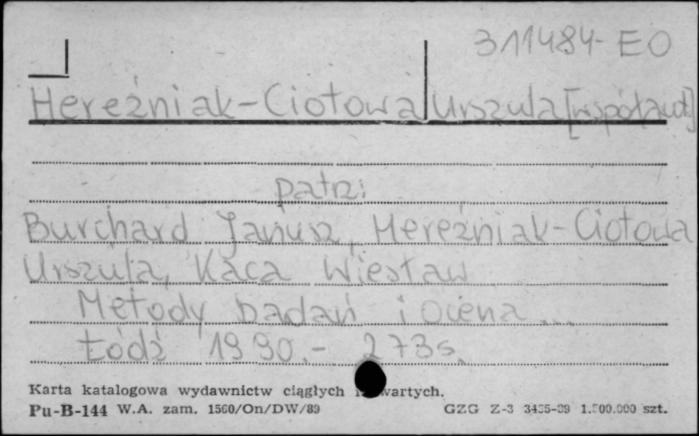 311484-EO
Hereźniak-Ciotowa Urszula [współaut]
patrz:
Burchard Janusz, Hereźniak-Ciotowa
Urszula, Kaca Wiesław
Metody badań i ocena...
Łódź 1990.- 273s.
Karta katalogowa wydawnictw ciągłych i zwartych.
Pu-B-144 W.A. zam. 1560/On/DW/89 GZG Z-3 3435-89 1.500.000 szt.